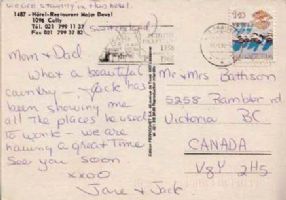 we are staying in this hotel
1487 - Hôtel-Restaurant Major Davel
1096 Cully (Switzerland)
Tél. 021 799 11 37
Fax 021 799 37 82
Mom & Dad
What a beautiful
country — Jack has
been showing me
all the places he used
to work - we are
having a great time
See you soon
xxoo
Jane & Jack.
Mr & Mrs Bathson
5258 Rambler rd
Victoria BC
CANADA
V8Y 2H5